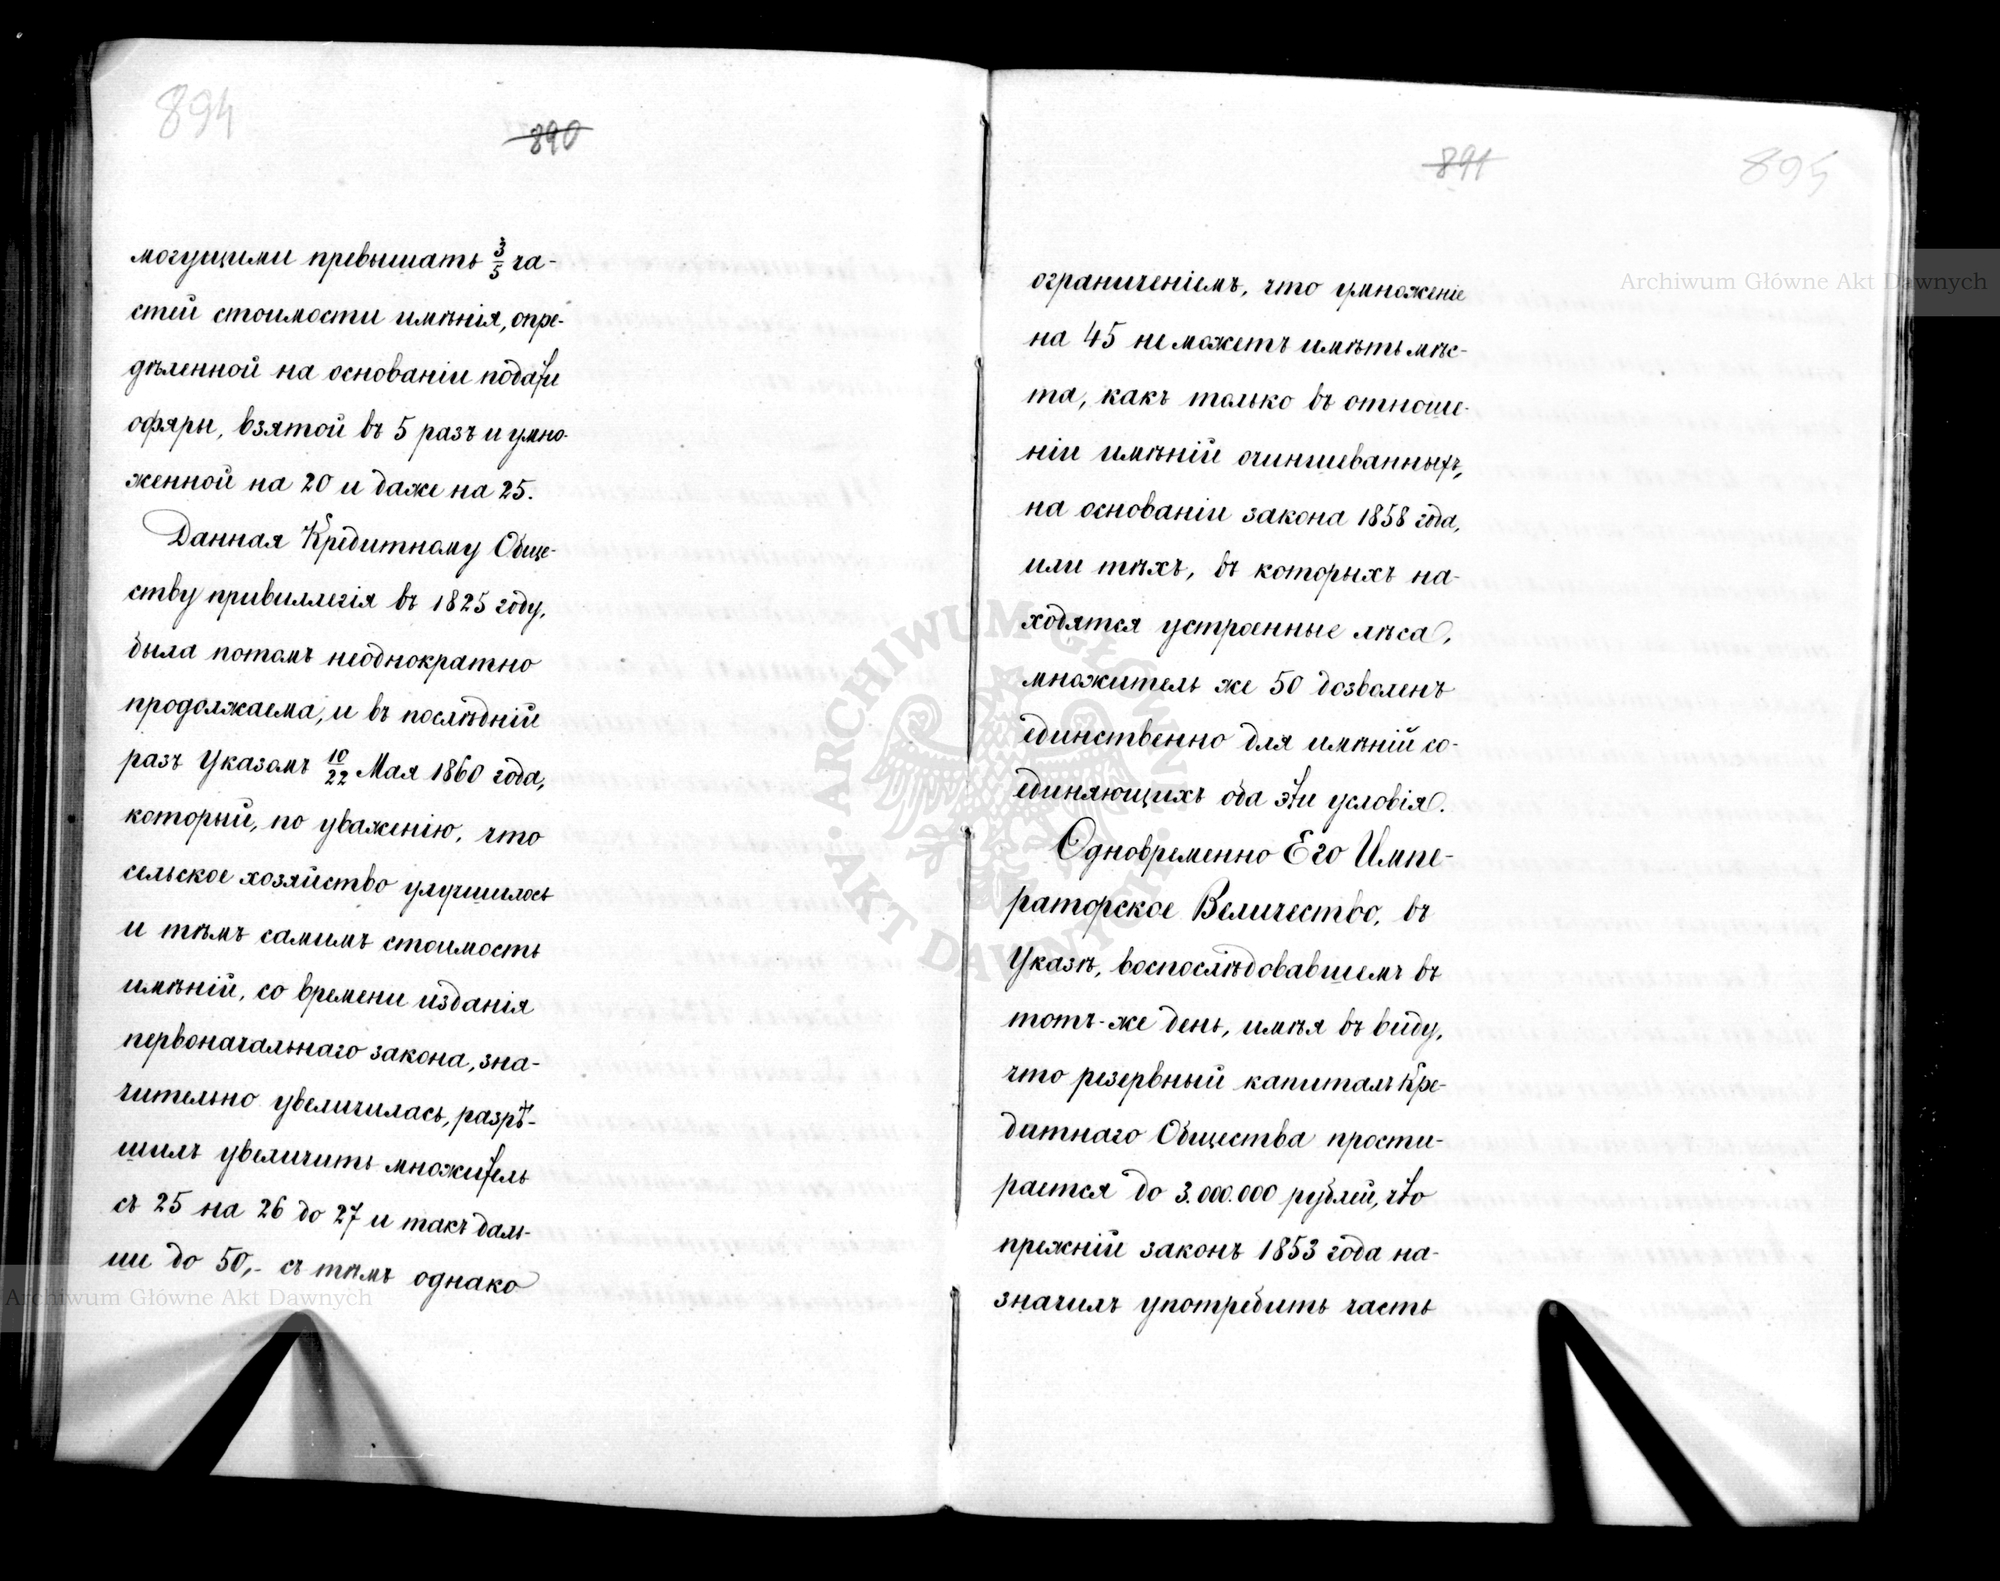 894
890
могущими превышать 3/5 ча-
стей стоимости имѣнія, опре-
дѣленной на основаніи подати
офяры, взятой въ 5 разъ и умно-
женной на 20 и даже на 25.
Данная Кредитному Обще-
ству привиллегія въ 1825 году,
была потомъ неоднократно
продолжаема, и въ послѣдній
разъ Указомъ 10/22 Мая 1860 года,
который, по уваженію, что
сельское хозяйство улучшилось
и тѣмъ самимъ стоимость
имѣній, со времени изданія
первоначальнаго закона, зна-
чительно увеличилась, разрѣ-
шилъ увеличить множитель
съ 25 на 26 до 27 и такъ даль-
ше до 50,- съ тѣмъ однако
891
895
ограниченіемъ, что умноженіе
на 45 не можетъ имѣть мѣс-
та, какъ только въ отноше-
ніи имѣній очиншеванныхъ,
на основаніи закона 1858 года,
или тѣхъ, въ которыхъ на-
ходятся устроенные лѣса,
множитель же 50 дозволенъ
единственно для имѣній со-
единяющихъ оба эти условія.
Одновременно Его Импе-
раторское Величество, въ
Указѣ, воспослѣдовавшемъ въ
тотъ-же день, имѣя въ виду,
что резервный капиталъ Кре-
дитнаго Общества прости-
рается до 3.000.000 рублей, что
прежній законъ 1853 года на-
значилъ употребить часть
Archiwum Główne Akt Dawnych
Archiwum Główne Akt Dawnych
ARCHIWUM GŁÓWNE AKT DAWNYCH